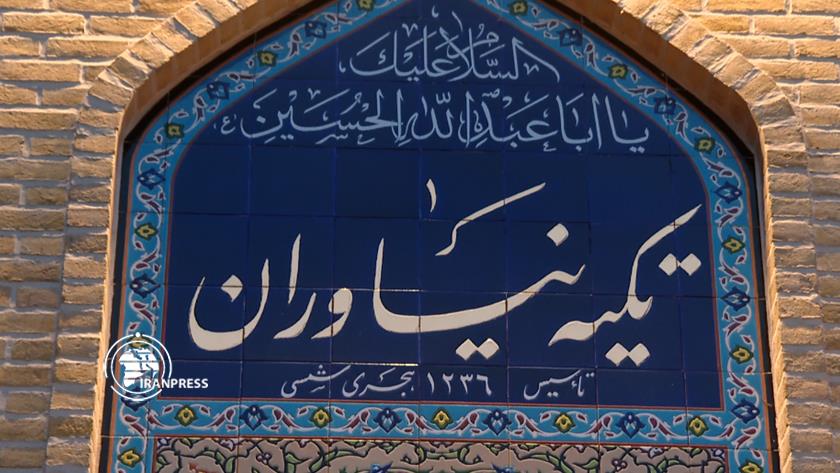 السَّلامُ عَلَیْكَ
یا اَبا عَبْدِ اللّٰهِ الْحُسَیْنِ ع
تکیه نیاوران
تأسیس ۱۲۳۶ هجری شمسی
IRANPRESS